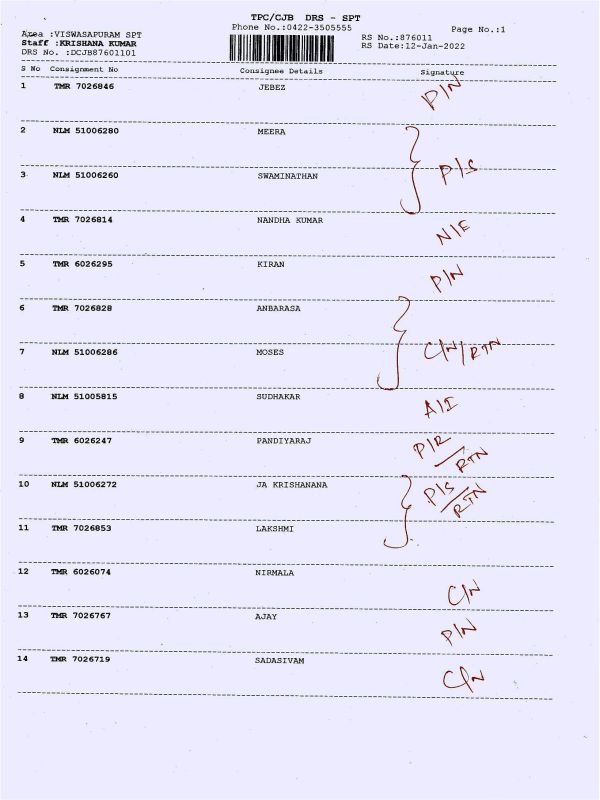 TPC/CJB DRS - SPT
Phone No.:0422-3505555
Page No.:1
Area :VISWASAPURAM SPT
Staff :KRISHANA KUMAR
DRS No. :DCJB87601101
RS No.:876011
RS Date:12-Jan-2022
S No Consignment No Consignee Details Signature
1 TMR 7026846 JEBEZ P/N
2 NLM 51006280 MEERA
P/S
3 NLM 51006260 SWAMINATHAN
4 TMR 7026814 NANDHA KUMAR N/E
5 TMR 6026295 KIRAN P/N
6 TMR 7026828 ANBARASA
C/N/RTN
7 NLM 51006286 MOSES
8 NLM 51005815 SUDHAKAR A/I
9 TMR 6026247 PANDIYARAJ P/R/RTN
10 NLM 51006272 JA KRISHANANA P/S/RTN
11 TMR 7026853 LAKSHMI
12 TMR 6026074 NIRMALA C/N
13 TMR 7026767 AJAY P/N
14 TMR 7026719 SADASIVAM C/N